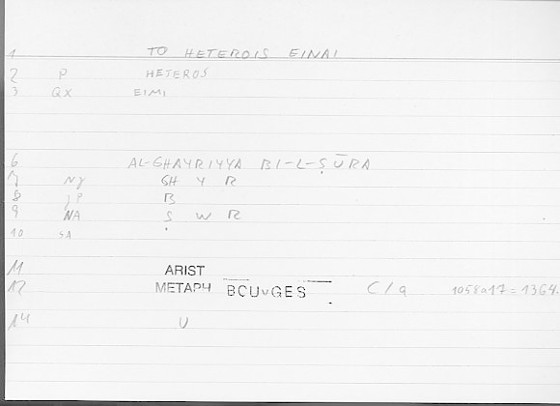 1 TO HETEROIS EINAI
2 P HETEROS
3 QX EIMI
6 AL-GHAYRIYYA BI-L-ṢŪRA
7 NJ GH Y R
8 JP B
9 NA Ṣ W R
10 SA
11 ARIST
12 METAPH BOUYGES C/a 1058a17 = 1364.
14 U